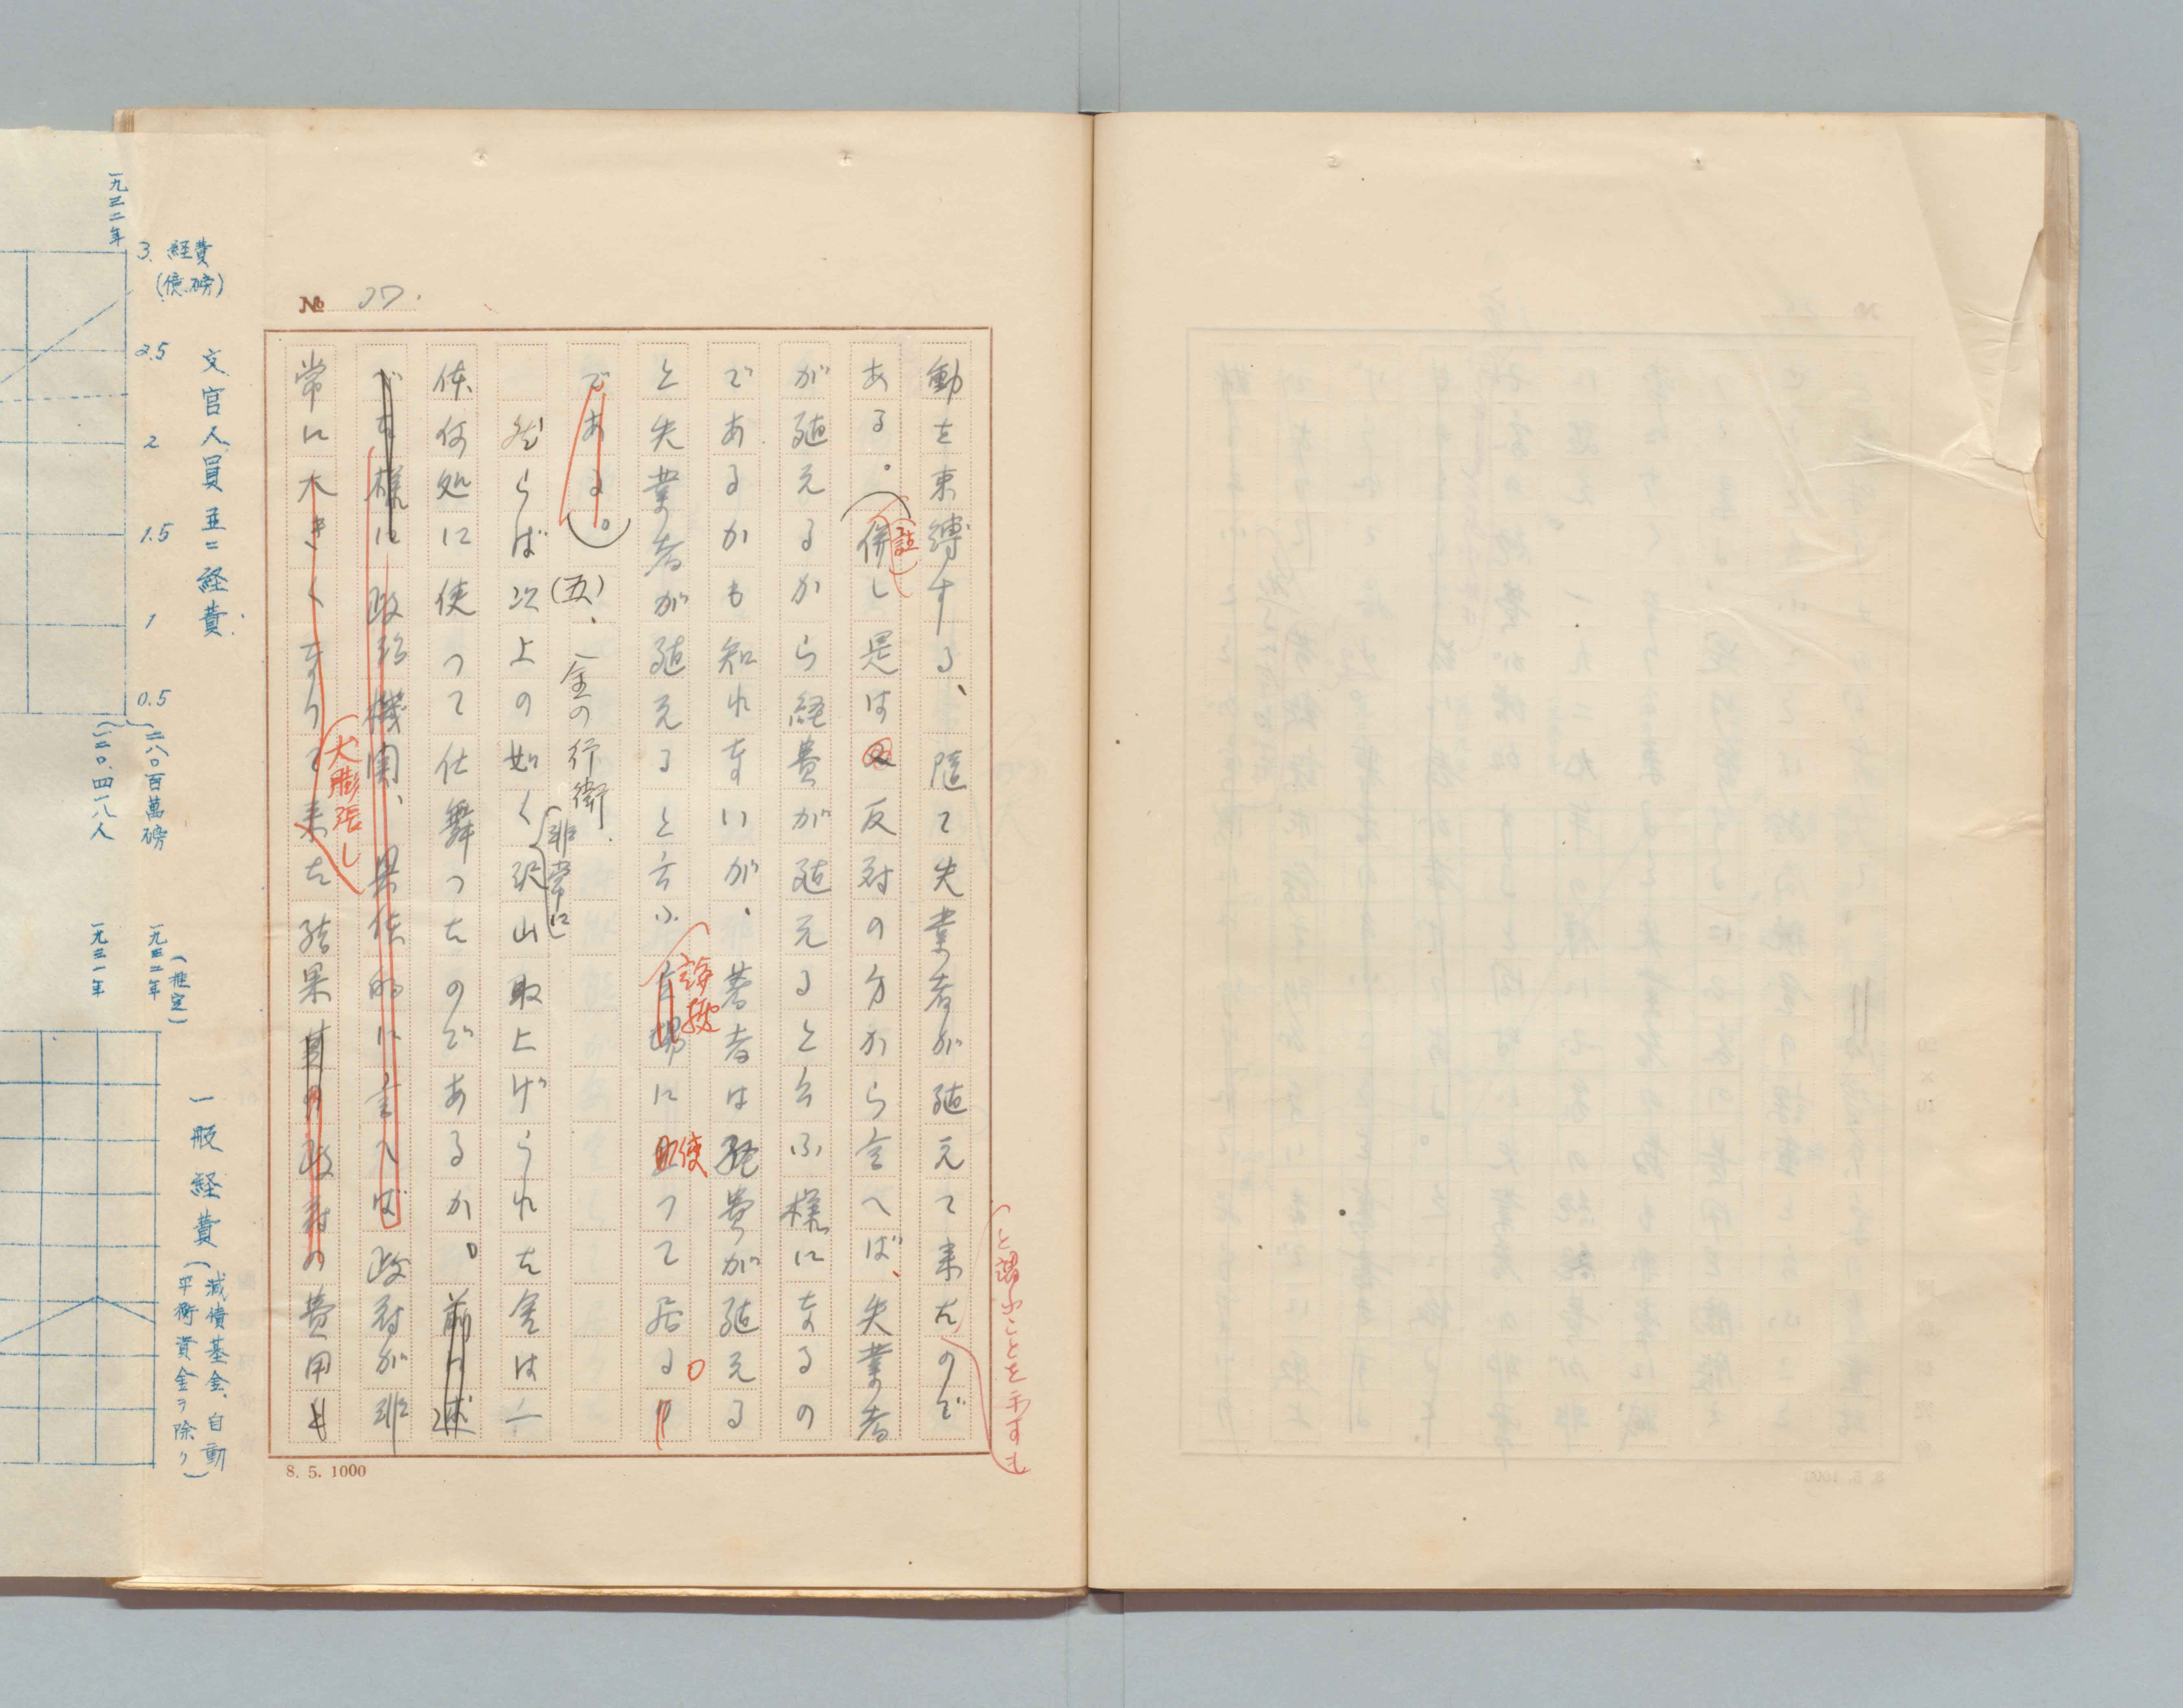 № 37.
と謂ふことを示すも
動を束縛する、随て失業者が殖えて来たので
ある。(併し是は反対の方から言へば、失業者
註
が殖えるから経費が殖えると云ふ様になるの
であるかも知れないが、著者は経費が殖える
と失業者が殖えると云ふ に使つて居る。
である。)
(五)、金の行衛
然らば次上の如く沢山取上げられた金は一
非常に
体何処に使つて仕舞つたのであるか。前に述
べた様に政治機関、具体的に言へば政府が非
大膨張し
常に大きくなりて来た結果其の政府の費用も
8. 5. 1000
文官人員並ニ経費
3. 経費
(億磅)
2.5
2
1.5
1
0.5
一九三二年
二八〇百萬磅
一二〇、四一八人
(推定)
一九三二年
一九三一年
一般経費(減債基金、自動
平衡資金ヲ除ク)